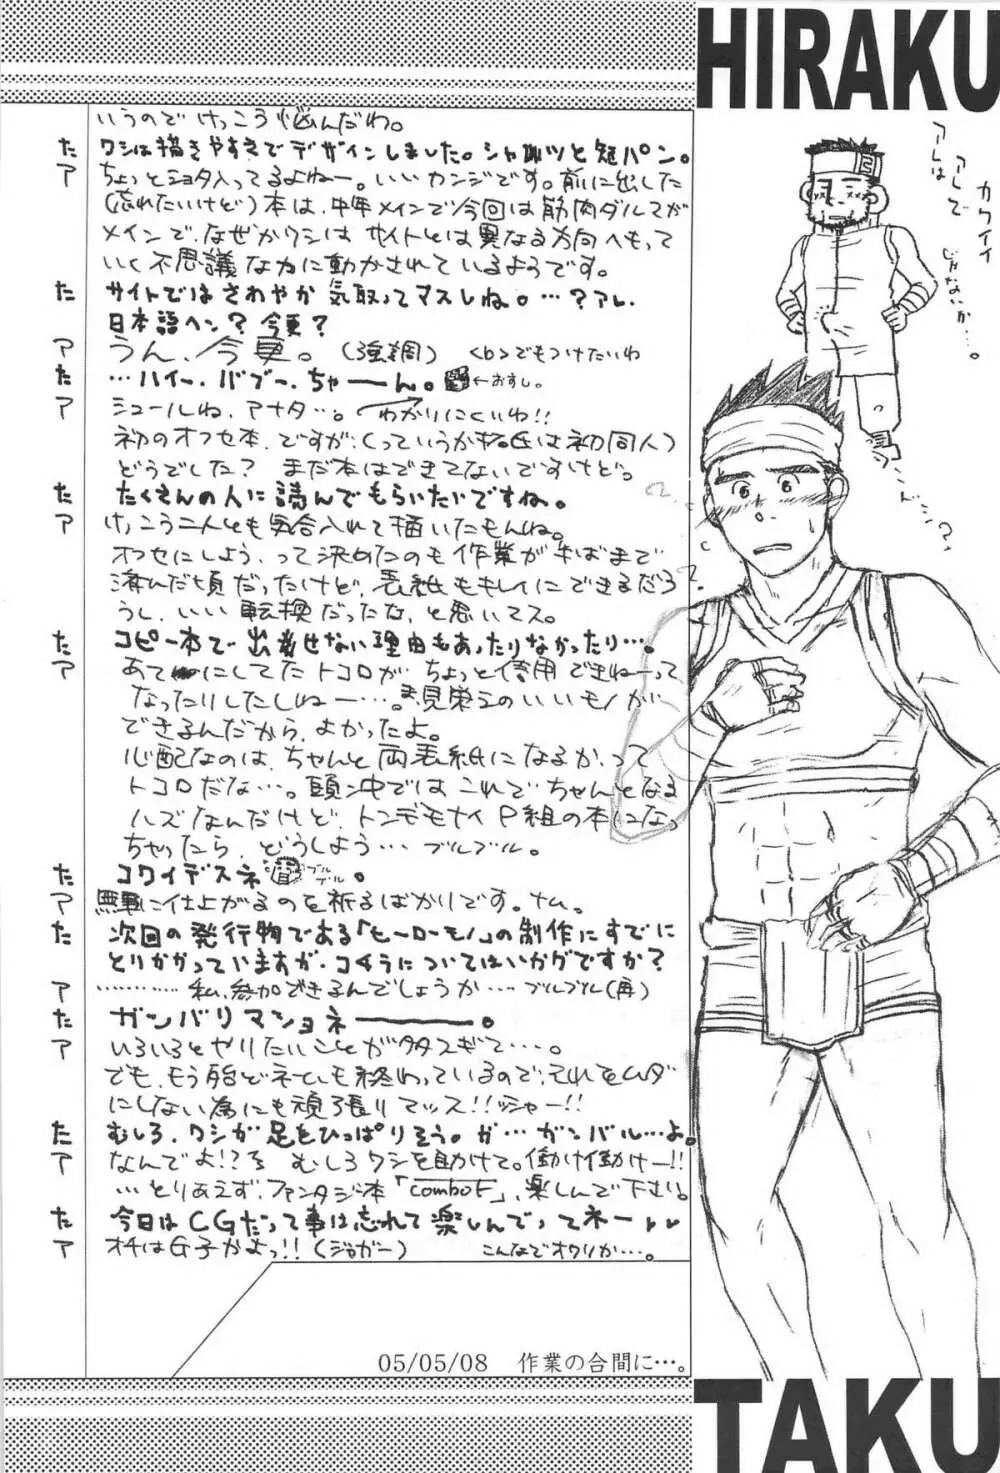 HIRAKU
いうのでけっこう悩んだわ。
た ワシは描きやすさでデザインしました。シャツと短パン。
ア ちょっとショタ入ってるよねー。いいカンジです。前に出した
(忘れたいけど)本は、中年メインで今回は筋肉ダルマが
メインで、なぜかワシはサイトとは異なる方向へもって
いく不思議な力に動かされているようです。
た サイトではさわやか気取ってマスしね。…?アレ、
日本語ヘン?今更?
ア うん、今更。(強調) <b>でもつけたいわ
た …ハイー、バブー、ちゃーん。←おすし。
ア シュールね、アナタ…。わかりにくいわ!!
初のオフセ本、ですが、(っていうか拓氏は初同人)
どうでした? まだ本はできてないですけど。
た たくさんの人に読んでもらいたいですね。
ア けっこう二人とも気合入れて描いたもんね。
オフセにしよう、って決めたのも作業が半ばまで
済んだ頃だったけど、表紙もキレイにできるだろ
うし、いい転換だったな、と思いマス。
た コピー本で出させない理由もあったりなかったり…。
ア あてにしてたトコロが、ちょっと信用できねーって
なったりしたしねー…。見栄えのいいモノが
できるんだから、よかったよ。
心配なのは、ちゃんと両表紙になるか、って
トコロだな…。頭ン中ではこれでちゃんとなる
ハズなんだけど、トンデモナイP組の本になっ
ちゃったら、どうしよう…ブルブル。
た コワイデスネ ブルブル。
ア 無事に仕上がるのを祈るばかりです。ナム。
た 次回の発行物である「ヒーローモノ」の制作にすでに
とりかかっていますが、コチラについてはいかがですか?
ア …………私、参加できるんでしょうか…ブルブル(再)
た ガンバリマショネーーー。
ア いろいろとやりたいことが多スギて…。
でも、もう殆どネームも終わっているので、それをムダ
にしない為にも頑張りマッス!!ッシャー!!
た むしろ、ワシが足をひっぱりそう。が…ガンバル…よ。
ア なんでよ!?むしろワシを助けて。働け働けー!!
…とりあえず、ファンタジー本「comboF」、楽しんで下さい。
た 今日はCGだって事は忘れて楽しんでってネー
ア オチはG子かよっ!!(ジョガー) こんなでオワリか…。
05/05/08 作業の合間に…。
アレは
アレで
カワイイ
じゃないか…。
TAKU